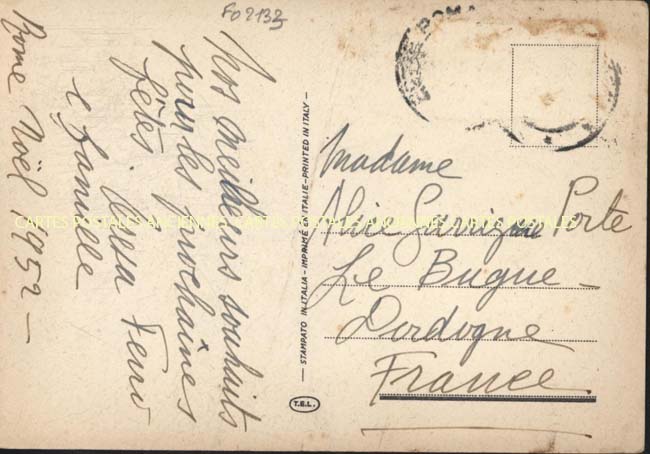 FO 2133
ROMA
Nos meilleurs souhaits
pour les prochaines
fêtes.
e famille
Rome Noël 1952 —
STAMPATO IN ITALIA - IMPRIMÉ EN ITALIE - PRINTED IN ITALY
T.E.L.
Madame
Alice Porte
Le Bugue -
Dordogne
France
CARTES POSTALES ANCIENNES CARTES POSTALES ANCIENNES CARTES POSTALES ANCIENNES